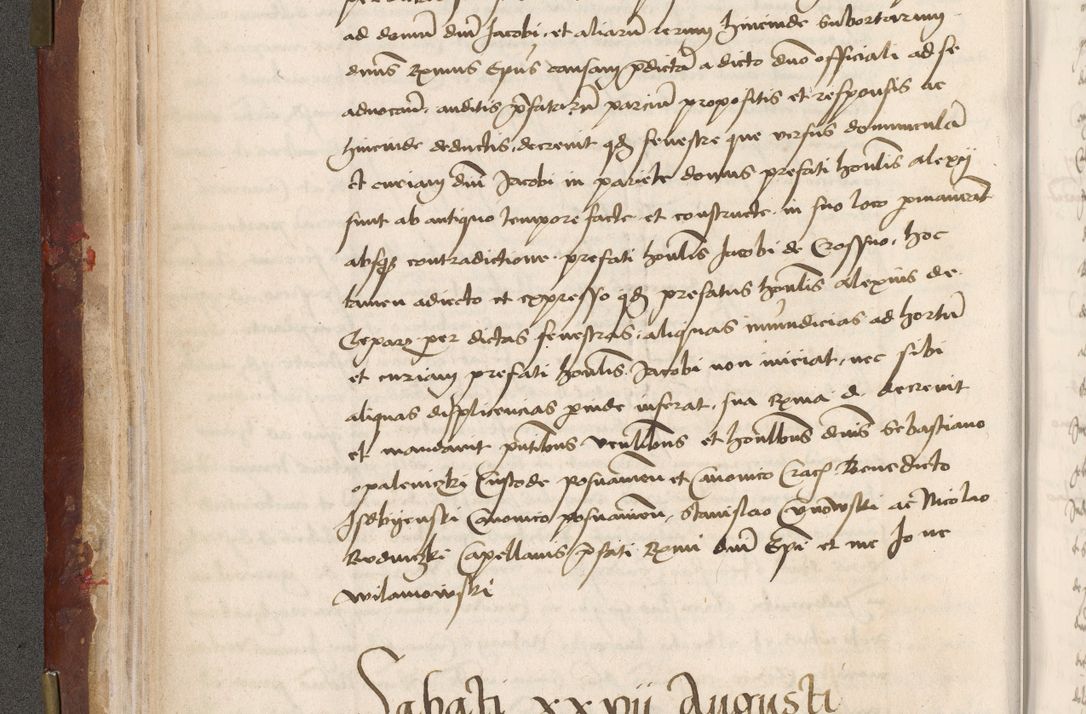 ad domum dni Jacobi, et aliarum rerum hincinde subortarum
dnus Rmus Epus causam pdictam a dicto dno officiali ad se
advocavit, auditis pfatarum parcium propositis et responsis ac
hincinde deductis, decrevit qd fenestre que versus domunculam
et curiam dni Jacobi in pariete domus prefati honlis Alexij
sunt ab antiquo tempore facte et constructe in suo loco pmaneant
absqz contradictione prefati honlis Jacobi de Crossno, hoc
tamen adiecto et expresso qd prefatus honlis Alexius de
per dictas fenestras, aliquas immundicias ad hortum
et curiam prefati honlis Jacobi non iniciat, nec sibi
aliquas displicencias pinde inferat, sua Rma d. decrevit
et mandavit pntibus venlibus et honlibus dnis Sebastiano
opaleniczki Custode posnanien et Canonico Crac Benedicto
Isdbyenski Canonico posnanien, Stanislao ac Nicolao
Capellanis pfati Rmi dni Epi et me Jo ne
wilamowski
Sabati xxvii Augusti